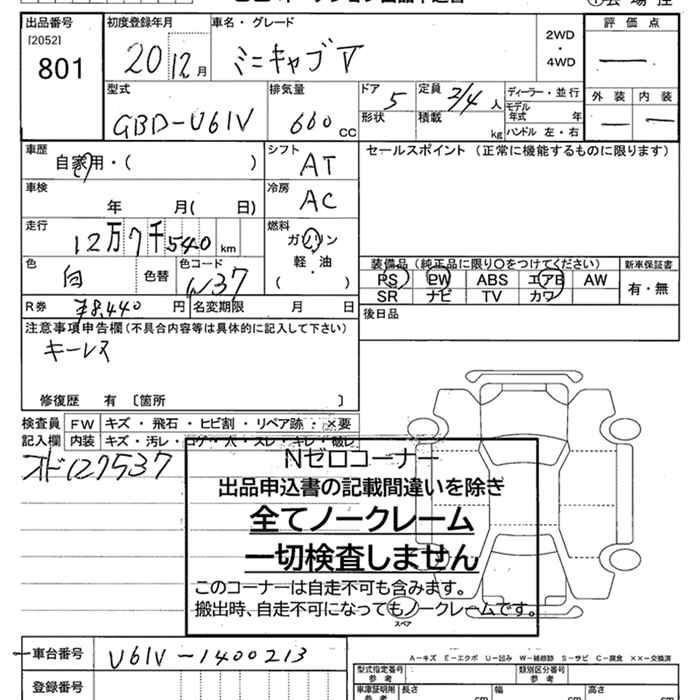 出品番号 初度登録年月 車名・グレード 評価点
[2052]
801
20 12月 ミニキャブV
2WD
・
4WD
ー
型式 排気量 ドア 5 定員 2/4人 ディーラー・並行 外装 内装
GBD-U61V 660cc 形状 積載 kg モデル年式 年 ー ー
ハンドル 左・右
車歴 シフト セールスポイント(正常に機能するものに限ります)
自家用・( ) AT
車検 冷房
年 月( 日) AC
走行 燃料
12万7千540km ガソリン
軽・油
( )
色 色替 色コード 装備品(純正品に限り○をつけてください) 新車保証書
白 W37 PS PW ABS エアB AW 有・無
SR ナビ TV カワ
R券 ¥8,440円 名変期限 月 日 後日品
注意事項申告欄(不具合内容等は具体的に記入して下さい)
キーレス
修復歴 有〔箇所 〕
検査員 FW キズ・飛石・ヒビ割・リペア跡・×要
記入欄 内装 キズ・汚レ・コゲ・穴・スレ・キレ・破レ
オド127537
Nゼロコーナー
出品申込書の記載間違いを除き
全てノークレーム
一切検査しません
このコーナーは自走不可も含みます。
搬出時、自走不可になってもノークレームです。
スペア
車台番号 U61V-1400213
A－キズ E－エクボ U－凹み W－補修跡 S－サビ C－腐食 ××－交換済
型式指定番号 類別区分番号
参考 参考
登録番号 車庫証明附 長さ 幅 高さ
参考 cm cm cm